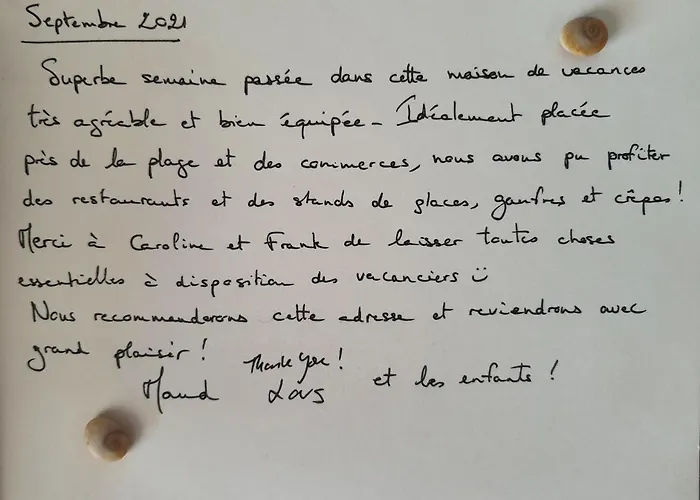 Septembre 2021
Superbe semaine passée dans cette maison de vacances
très agréable et bien équipée - Idéalement placée
près de la plage et des commerces, nous avons pu profiter
des restaurants et des stands de glaces, gaufres et crêpes !
Merci à Caroline et Frank de laisser toutes choses
essentielles à disposition des vacanciers ü
Nous recommanderons cette adresse et reviendrons avec
grand plaisir ! Thank you !
Maud et les enfants !